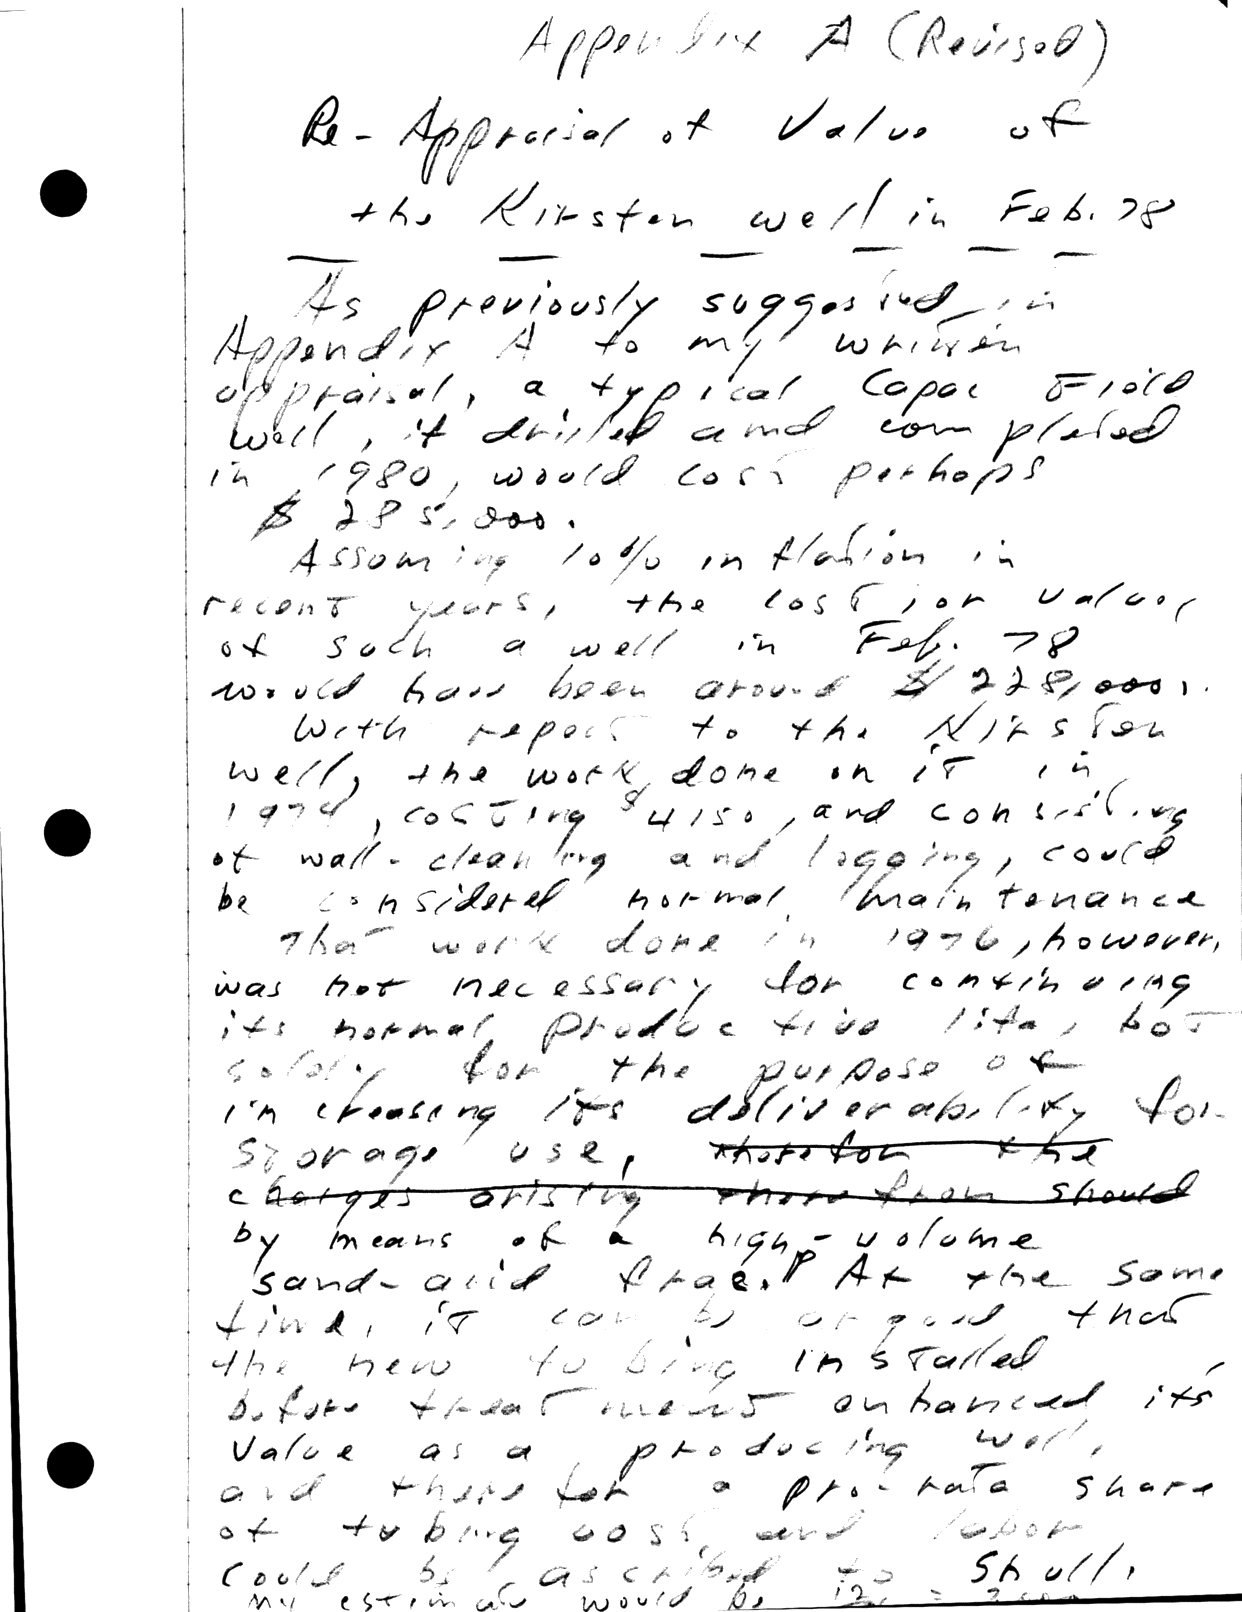 Appendix A (Revised)
Re-Appraisal of Value of
the Kirsten well in Feb. 78
As previously suggested in
Appendix A to my written
appraisal, a typical Capac Field
well, if drilled and completed
in 1980, would cost perhaps
$285,000.
Assuming 10% inflation in
recent years, the cost, or value,
of such a well in Feb. 78
would have been around $228,000.
With respect to the Kirsten
well, the work done on it in
1974, costing $4150, and consisting
of wall-cleaning and logging, could
be considered normal maintenance
That work done in 1976, however,
was not necessary for continuing
its normal productive life, but
solely for the purpose of
increasing its deliverability for
storage use, therefor the
charges arising there from should
by means of a high-volume
sand-acid frac. At the same
time, it can be argued that
the new tubing installed
before treatment enhanced its
value as a producing well,
and therefor a pro-rata share
of tubing cost and labor
could be ascribed to Shull.
My estimate would be